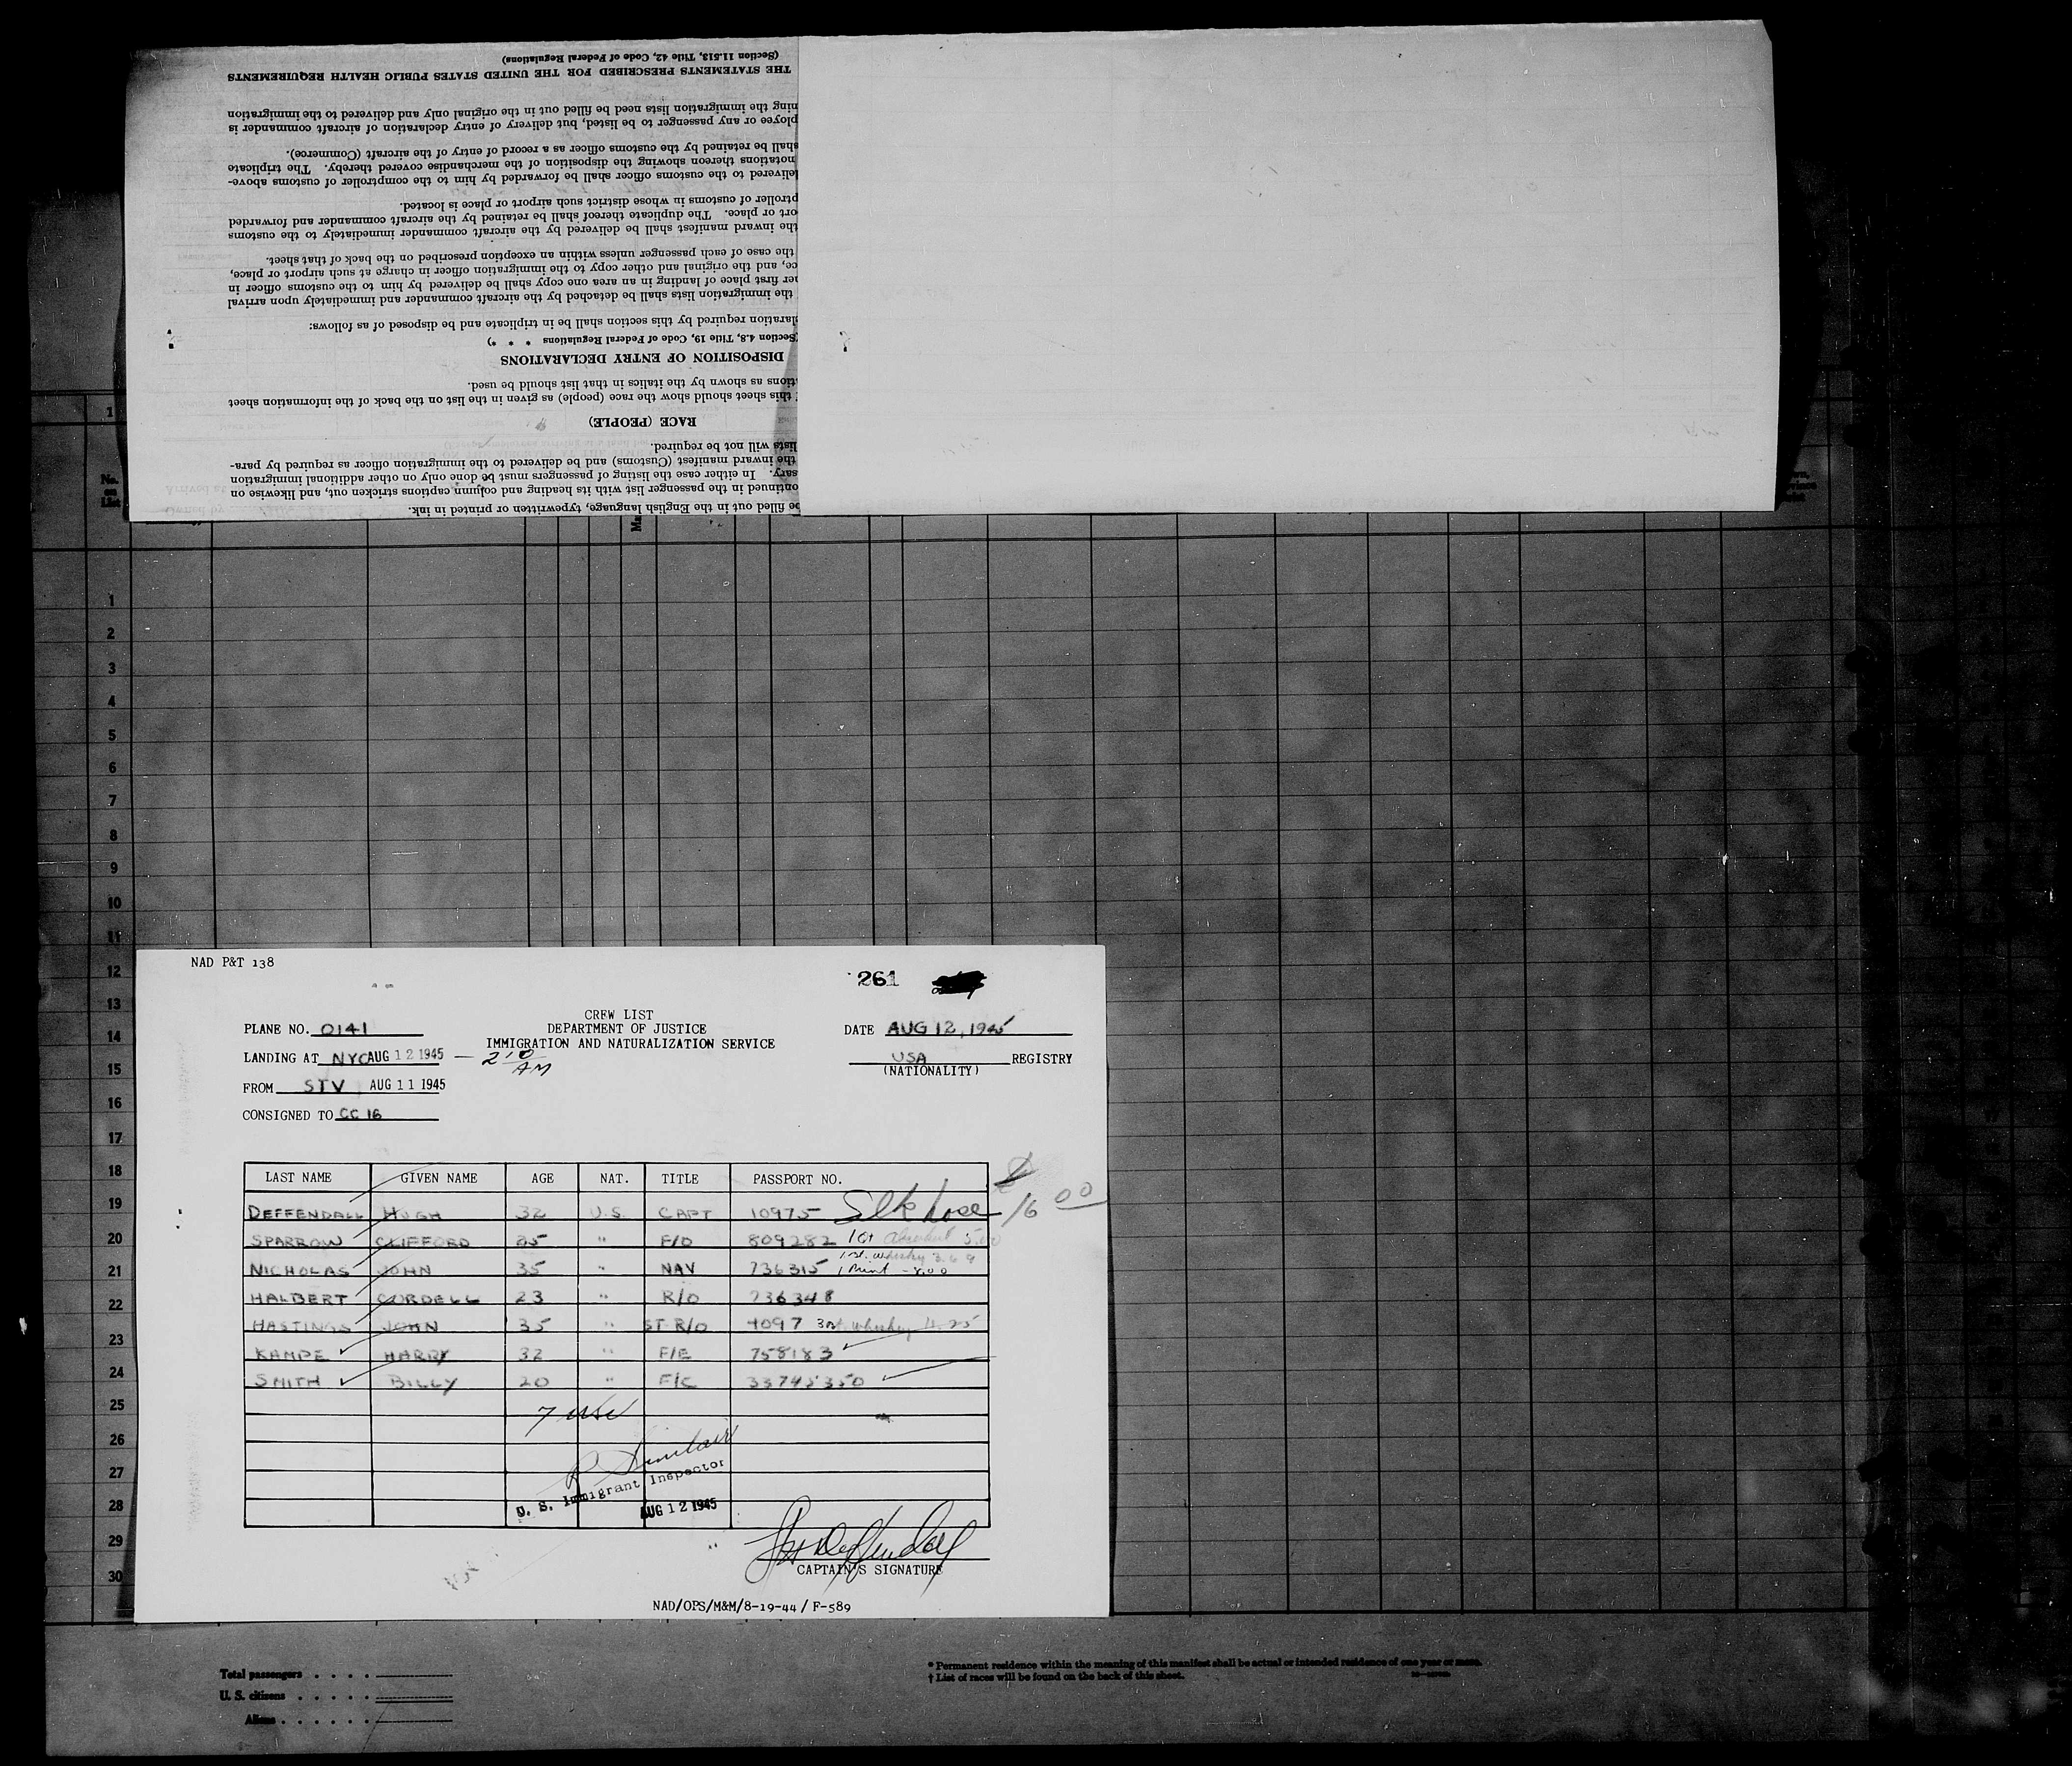 (Section 11.513, Title 42, Code of Federal Regulations)
THE STATEMENTS PRESCRIBED FOR THE UNITED STATES PUBLIC HEALTH REQUIREMENTS
ning the immigration lists need be filled out in the original only and delivered to the immigration
ployee or any passenger to be listed, but delivery of entry declaration of aircraft commander is
shall be retained by the customs officer as a record of entry of the aircraft (Commerce).
notations thereon showing the disposition of the merchandise covered thereby. The triplicate
delivered to the customs officer shall be forwarded by him to the comptroller of customs above-
ptroller of customs in whose district such airport or place is located.
ort or place. The duplicate thereof shall be retained by the aircraft commander and forwarded
the inward manifest shall be delivered by the aircraft commander immediately to the customs
the case of each passenger unless within an exception prescribed on the back of that sheet.
ce, and the original and other copy to the immigration officer in charge at such airport or place,
er first place of landing in an area one copy shall be delivered by him to the customs officer in
the immigration lists shall be detached by the aircraft commander and immediately upon arrival
laration required by this section shall be in triplicate and be disposed of as follows:
(Section 4.8, Title 19, Code of Federal Regulations * * *)
DISPOSITION OF ENTRY DECLARATIONS
tions as shown by the italics in that list should be used.
this sheet should show the race (people) as given in the list on the back of the information sheet
RACE (PEOPLE)
lists will not be required.
the inward manifest (Customs) and be delivered to the immigration officer as required by para-
sary. In either case the listing of passengers must be done only on other additional immigration
ontinued in the passenger list with its heading and column captions stricken out, and likewise on
be filled out in the English language, typewritten or printed in ink.
1
No. on List
1
2
3
4
5
6
7
8
9
10
11
12
13
14
15
16
17
18
19
20
21
22
23
24
25
26
27
28
29
30
NAD P&T 138
261
CREW LIST
PLANE NO. 0141 DEPARTMENT OF JUSTICE DATE AUG 12, 1945
IMMIGRATION AND NATURALIZATION SERVICE
LANDING AT NYC AUG 12 1945 — 2 10 AM USA REGISTRY
(NATIONALITY)
FROM STV AUG 11 1945
CONSIGNED TO CC 16
LAST NAME GIVEN NAME AGE NAT. TITLE PASSPORT NO.
DEFFENDALL HUGH 32 U.S. CAPT 10975 Silk hose 16 00
SPARROW CLIFFORD 25 " F/O 809282 1 Qt
NICHOLAS JOHN 35 " NAV 736315 1 Qt. whiskey 3.69
HALBERT CORDELL 23 " R/O 736348
HASTINGS JOHN 35 " ST R/O 4097 whiskey
KAMPE HARRY 32 " F/E 758183
SMITH BILLY 20 " F/C 33745350
7 USC
R Sinclair
U. S. Immigrant Inspector
AUG 12 1945
CAPTAIN'S SIGNATURE
NAD/OPS/M&M/8-19-44 / F-589
Total passengers . . . .
U. S. citizens . . . . .
Aliens . . . . . .
* Permanent residence within the meaning of this manifest shall be actual or intended residence of one year or more.
† List of races will be found on the back of this sheet.